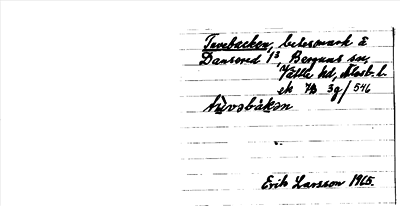 Tuvebacken, betesmark å
Dansered 1³, Bergums sn,
Vättle hd, Älvsb. l.
ek 7B 3g/546
tùvəbàkən
Erik Larsson 1965.